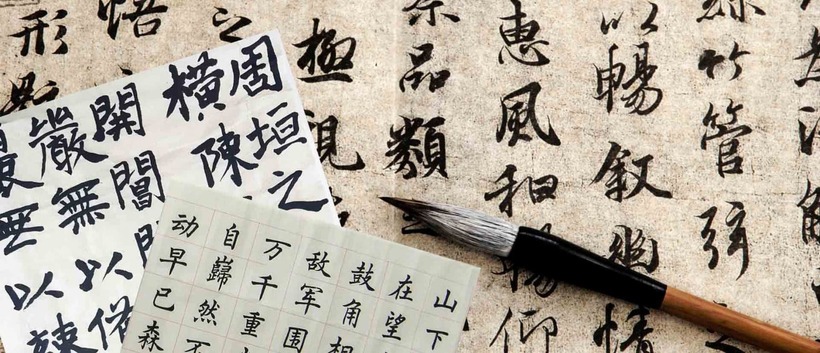 絲竹管弦
以暢叙幽情
惠風和暢仰
品類
極視
之
悟
形
周垣之
横陳
開閶
嚴無以
無以諫
山下
在望
鼓角相
敌军围
万千重
自巋然不
动早已森